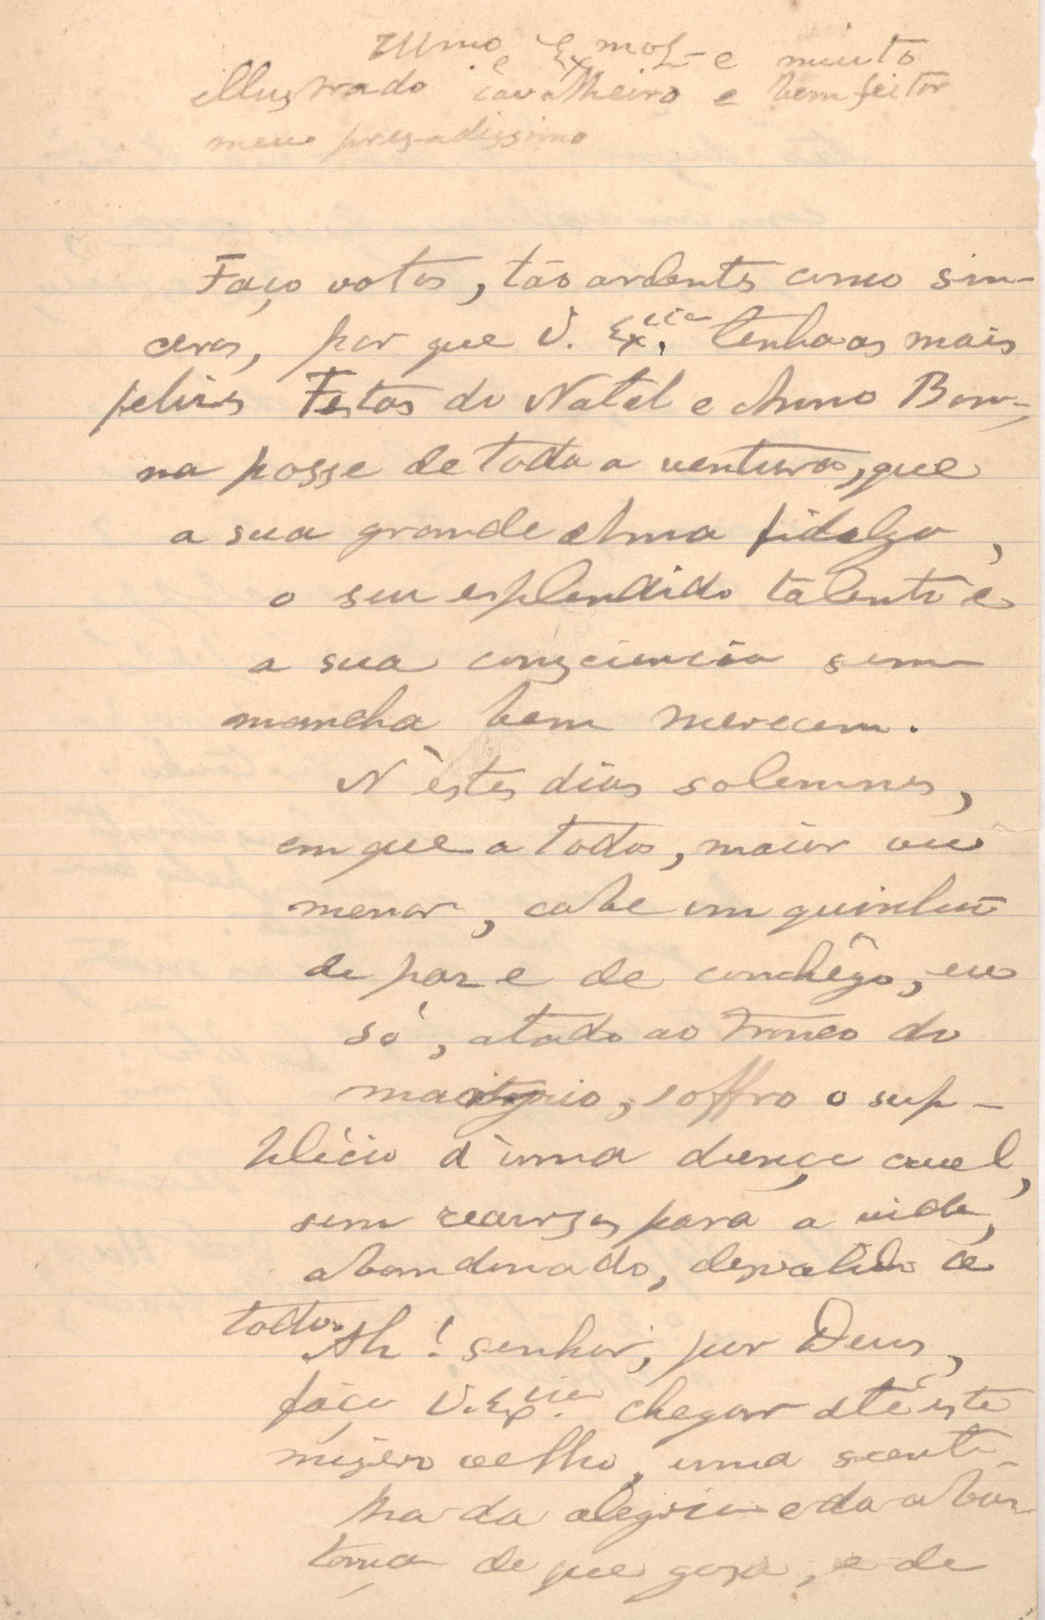 Illmo e Exmo Sr e muito
illustrado cavalheiro e bemfeitor
meu presadissimo
Faço votos, tão ardentes como sin-
ceros, por que V. Ex.cia tenha as mais
felizes Festas do Natal e Anno Bom,
na posse de toda a ventura, que
a sua grande Alma fidalga,
o seu esplendido talento e
a sua consciencia sem
mancha bem merecem.
N'estes dias solemnes,
em que a todos, maior ou
menor, cabe um quinhão
de paz e de conchêgo, eu
só, atado ao tronco do
martyrio, soffro o sup-
plicio d'uma doença cruel,
sem recursos para a vida,
abandonado, desvalido de
todos.
Ah! senhor, por Deus,
faça V. Ex.cia chegar até este
misero velho, uma scente-
lha da alegria e da abas-
tança de que gosa, e de